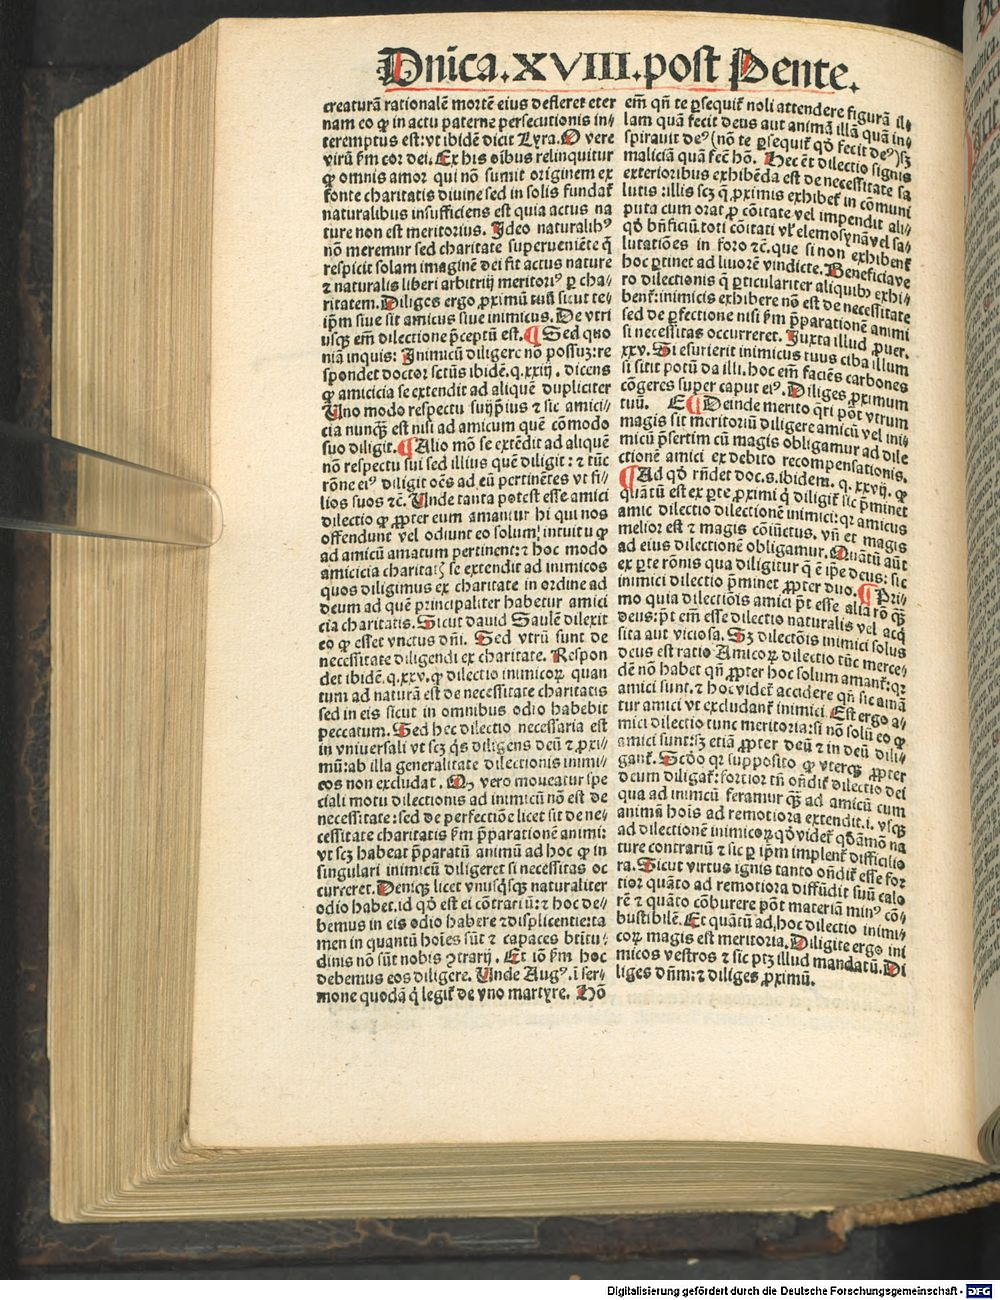 Dñica.XVIII.post Pente.
creaturā rationalē mortē eius defleret eter
nam eo ꝙ in actu paterne persecutionis in⸗
teremptus est:vt ibidē dicit Lyra. O vere
virū ẜm cor dei. Ex his oībus relinquitur
ꝙ omnis amor qui nō sumit originem ex
fonte charitatis diuine sed in solis fundat̄
naturalibus insufficiens est quia actus na
ture non est meritorius. Ideo naturalibꝰ
nō meremur sed charitate superueniēte q̄
respicit solam imaginē dei fit actus nature
⁊ naturalis liberi arbitrij meritoriꝰ ꝑ cha⸗
ritatem. Diliges ergo ꝓximū tuū sicut te⸗
ip̄m siue sit amicus siue inimicus. De vtri
usqꝫ em̄ dilectione p̄ceptū est. ¶ Sed quo
niā inquis: Inimicū diligere nō possuꝫ:re
spondet doctor sctūs ibidē.q.xxiij. dicens
ꝙ amicicia se extendit ad aliquē dupliciter
Uno modo respectu suijp̄ius ⁊ sic amici⸗
cia nunqꝫ est nisi ad amicum quē cōmodo
suo diligit. ¶ Alio mō se extēdit ad aliquē
nō respectu sui sed illius quē diligit: ⁊ tūc
rōne eiꝰ diligit oēs ad eū pertinētes vt fi⸗
lios suos ⁊c. Unde tanta potest esse amici
dilectio ꝙ ꝓpter eum amantur hi qui nos
offendunt vel odiunt eo solum intuitu ꝙ
ad amicū amatum pertinent:⁊ hoc modo
amicicia charitatꝭ se extendit ad inimicos
quos diligimus ex charitate in ordine ad
deum ad quē principaliter habetur amici
cia charitatis. Sicut dauid Saulē dilexit
eo ꝙ esset vnctus dn̄i. Sed vtrū sunt de
necessitate diligendi ex charitate. Respon
det ibidē.q.xxv.ꝙ dilectio inimicoꝝ quan
tum ad naturā est de necessitate charitatis
sed in eis sicut in omnibus odio habebit
peccatum. Sed hec dilectio necessaria est
in vniuersali vt scꝫ q̇s diligens deū ⁊ ꝓxi⸗
mū:ab illa generalitate dilectionis inimi⸗
cos non excludat. Qꝫ vero moueatur spe
ciali motu dilectionis ad inimicū nō est de
necessitate:sed de perfectiōe licet sit de ne⸗
cessitate charitatis ẜm p̄parationē animi:
vt scꝫ habeat p̄paratū animū ad hoc ꝙ in
singulari inimicū diligeret si necessitas oc
curreret. Deniqꝫ licet vnusq̇sqꝫ naturaliter
odio habet.id qḋ est ei cōtrariū:⁊ hoc de⸗
bemus in eis odio habere ⁊ displicentie:ta
men in quantū hoīes sūt ⁊ capaces btītu⸗
dinis nō sūt nobis ꝯtrarij. Et iō ẜm hoc
debemus eos diligere. Unde Augꝰ. ī ser⸗
mone quodā q̇ legit̄ de vno martyre. Hō
em̄ qn̄ te ꝑsequit̄ noli attendere figurā il⸗
lam quā fecit deus aut animā illā quā in⸗
spirauit deꝰ (nō te ꝑsequit̄ qḋ fecit deꝰ) sꝫ
maliciā quā fec̄ hō. Hec ēt dilectio signis
exterioribus exhibēda est de necessitate sa
lutis :illis scꝫ q̄ ꝓximis exhibet̄ in cōmuni
puta cum orat ꝓ cōitate vel impendit ali⸗
qḋ bn̄ficiū toti cōitati vł elemosynā vel sa⸗
lutatiōes in foro ⁊c.que si non exhibent̄
hoc ꝑtinet ad liuorē vindicte. Beneficia ve
ro dilectionis q̄ ꝑticulariter aliquibꝫ exhi⸗
bent̄:inimicis exhibere nō est de necessitate
sed de ꝑfectione nisi ẜm p̄parationē animi
si necessitas occurreret. Juxta illud ꝓuer.
xxv. Si esurierit inimicus tuus ciba illum
si sitit potū da illi.hoc em̄ faciēs carbones
cōgeres super caput eiꝰ. Diliges ꝓximum
tuū. E ¶ Deinde merito q̄ri pōt vtrum
magis sit meritoriū diligere amicū vel ini⸗
micū p̄sertim cū magis obligamur ad dile
ctionē amici ex debito recompensationis.
¶ Ad qḋ rn̄det doc.s.ibidem. q. xxvij. ꝙ
quātū est ex ꝑte ꝓximi q̇ diligit̄ sic p̄minet
amic dilectio dilectionē inimici:qꝛ amicus
melior est ⁊ magis cōiūctus. vn̄ et magis
ad eius dilectionē obligamur. Quātū aūt
ex ꝑte rōnis qua diligitur q̄ ē ip̄e deus: sic
inimici dilectio p̄minet ꝓpter duo. ¶ Pri⸗
mo quia dilectiōis amici p̄t esse alia rō qꝫ̄
deus:p̄t em̄ esse dilectio naturalis vel acq̇
sita aut viciosa. Sꝫ dilectōis inimici solus
deus est ratio Amicoꝝ dilectio tūc merce⸗
dē nō habet qn̄ ꝓpter hoc solum amant̄:qꝛ
amici sunt.⁊ hoc videt̄ accidere qn̄ sic amā
tur amici vt excludant̄ inimici. Est ergo a⸗
mici dilectio tunc meritoria:si nō solū eo ꝙ
amici sunt:sꝫ etiā ꝓpter deū ⁊ in deū dili⸗
gant̄. Scḋo qꝛ supposito ꝙ vterqꝫ ꝓpter
deum diligat̄:fortior tn̄ on̄dit̄ dilectio dei
qua ad inimicū feramur qꝫ̄ ad amicū cum
animū hoīs ad remotiora extendit.i. vsqꝫ
ad dilectionē inimicoꝝ qḋ videt̄ qḋāmō na
ture contrariū ⁊ sic ꝑ ip̄m implent̄ difficilio
ra. Sicut virtus ignis tanto on̄dit̄ esse for
tior quāto ad remotiora diffūdit suū calo
rē ⁊ quāto cōburere pōt materiā minꝰ cō⸗
bustibilē. Et quātū ad hoc dilectio inimi⸗
coꝝ magis est meritoria. Diligite ergo ini
micos vestros ⁊ sic ptꝫ illud mandatū. Di
liges dn̄m:⁊ diliges ꝓximū.
Digitalisierung gefördert durch die Deutsche Forschungsgemeinschaft - DFG